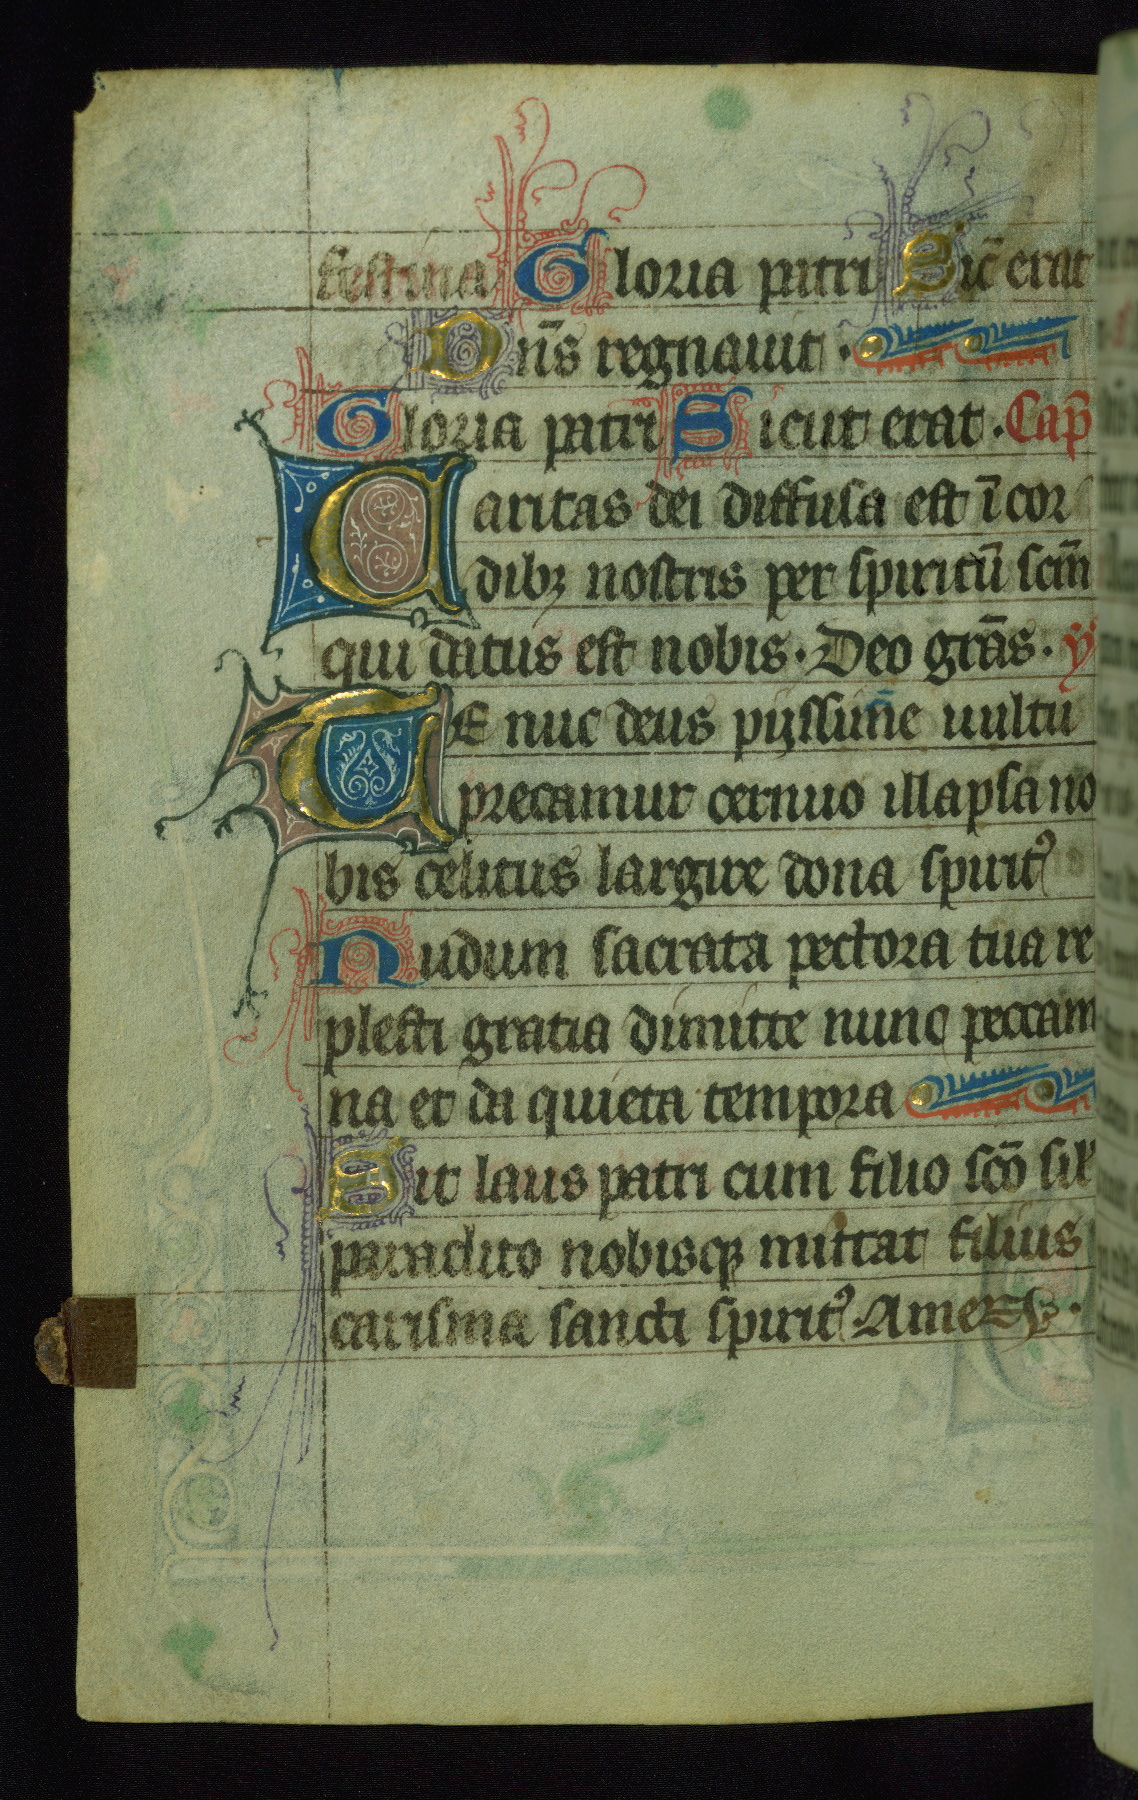 festina Gloria patri Sic̄ erat
Dn̄s regnauit .
Gloria patri Sicut erat . Cap̄
Caritas dei diffusa est ī cor
dibꝫ nostris per spiritū scm̄
qui datus est nobis . Deo grās . ẏ
TE nūc deus pijssime uultu
precamur cernuo illapsa no
bis celitus largire dona spiritꝰ
Nudum sacrata pectora tua re
plesti gratia dimitte nunc peccam
na et da quieta tempora
Sit laus patri cum filio scō sil
paraclito nobisqꝫ mittat filius
carisma sancti spiritꝰ . Amen .